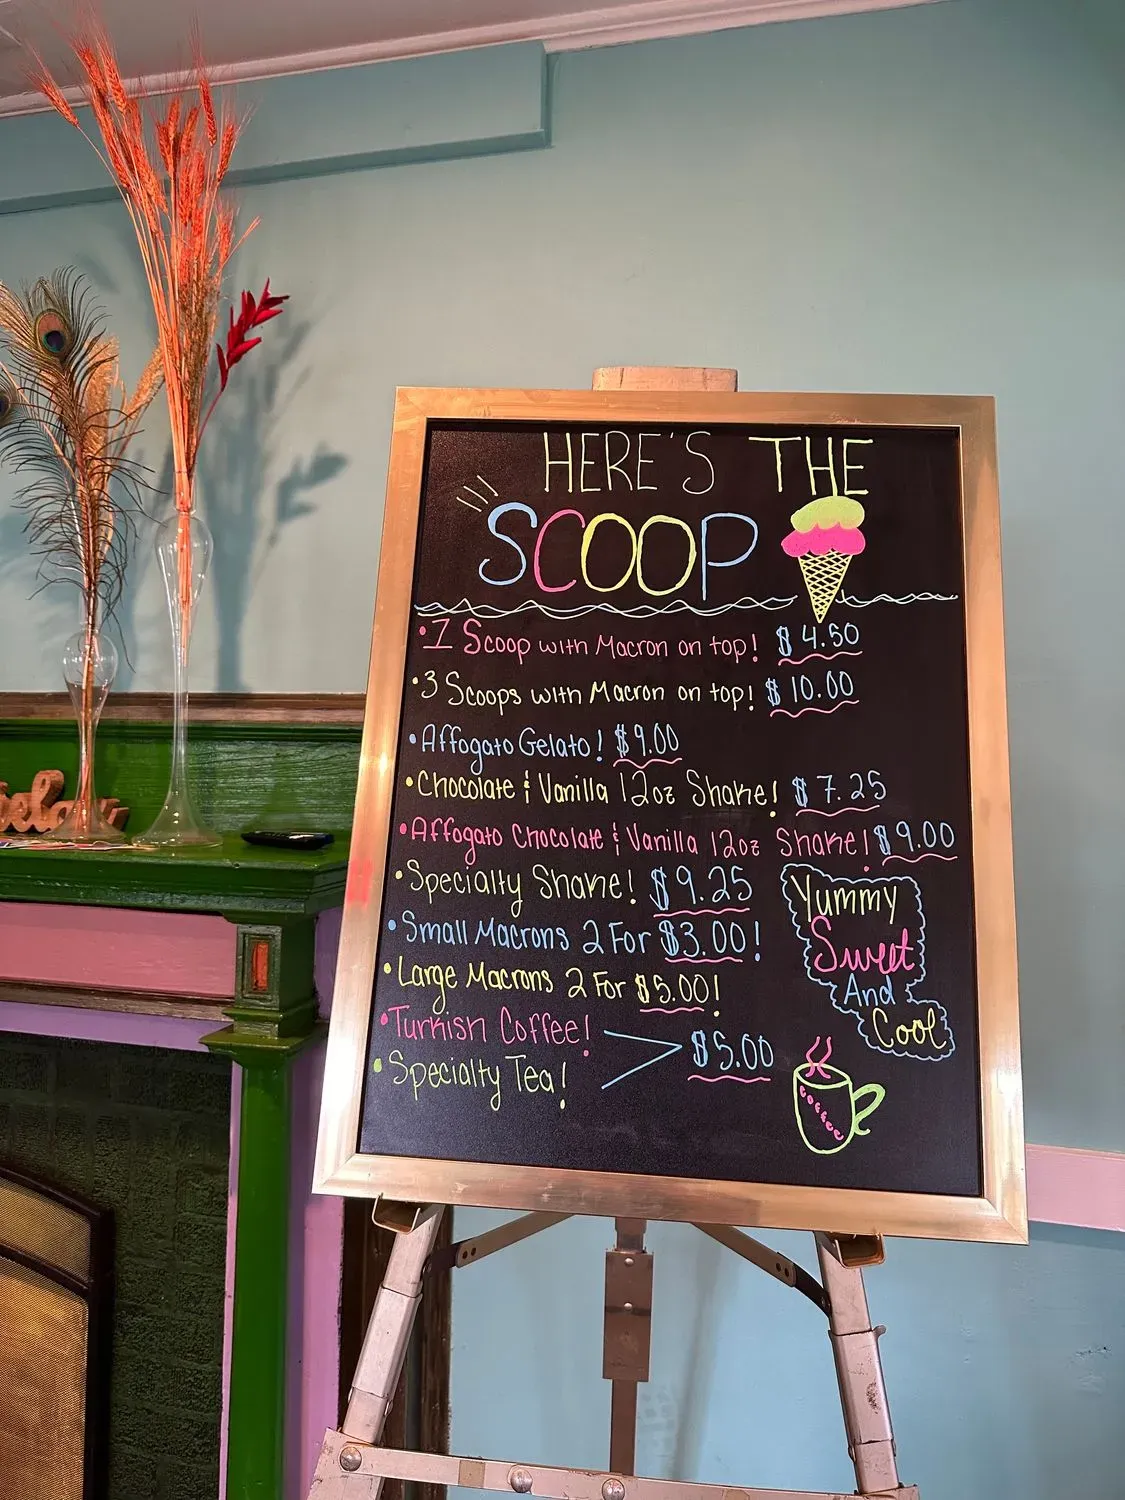 HERE'S THE
SCOOP
•1 Scoop with Macron on top! $4.50
•3 Scoops with Macron on top! $10.00
•Affogato Gelato! $9.00
•Chocolate & Vanilla 12oz Shake! $7.25
•Affogato Chocolate & Vanilla 12oz Shake! $9.00
•Specialty Shake! $9.25
•Small Macrons 2 For $3.00!
•Large Macrons 2 For $5.00!
•Turkish Coffee!
•Specialty Tea!
$5.00
Yummy
Sweet
And
Cool
coffee